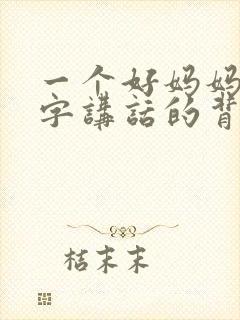 一个好妈妈
字讲話的背
桔末末